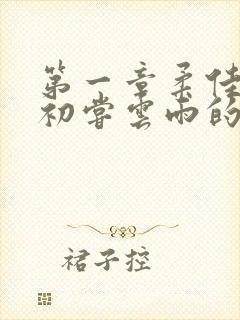 第一章柔佳
初尝云雨的
裙子控